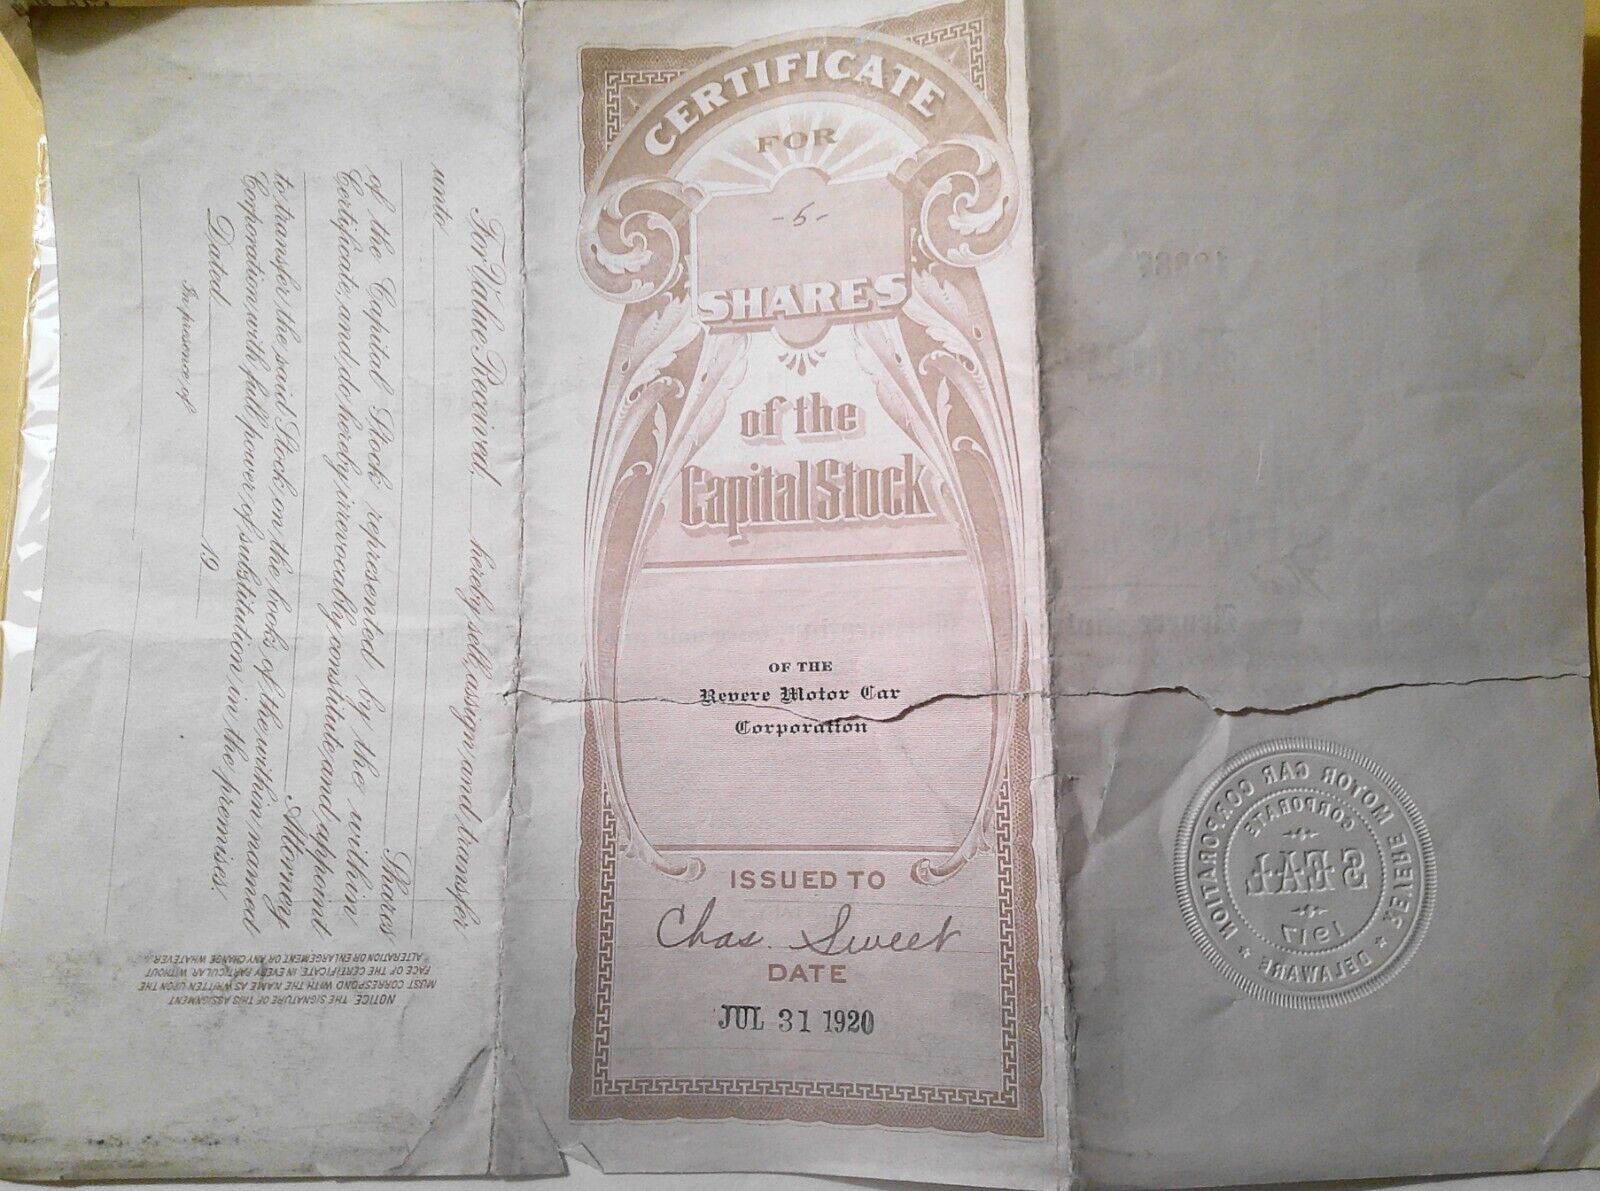 CERTIFICATE
FOR
-5-
SHARES
of the
Capital Stock
OF THE
Revere Motor Car
Corporation
ISSUED TO
Chas. Sweet
DATE
JUL 31 1920
For Value Received, hereby sell, assign and transfer
unto
Shares
of the Capital Stock represented by the within
Certificate, and do hereby irrevocably constitute and appoint
Attorney
to transfer the said Stock on the books of the within named
Corporation with full power of substitution in the premises.
Dated 19
In presence of
NOTICE. THE SIGNATURE OF THIS ASSIGNMENT
MUST CORRESPOND WITH THE NAME AS WRITTEN UPON THE
FACE OF THE CERTIFICATE, IN EVERY PARTICULAR, WITHOUT
ALTERATION OR ENLARGEMENT, OR ANY CHANGE WHATEVER.
REVERE MOTOR CAR CORPORATION
DELAWARE
CORPORATE
SEAL
1917